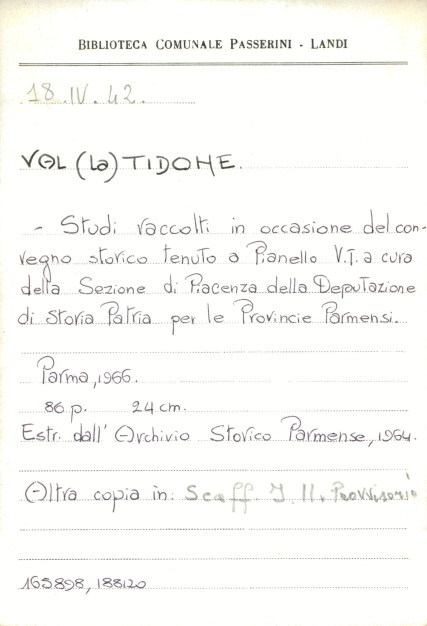 BIBLIOTECA COMUNALE PASSERINI - LANDI
18.IV.42.
VAL (la) TIDONE.
- Studi raccolti in occasione del con-
vegno storico tenuto a Pianello V.T. a cura
della Sezione di Piacenza della Deputazione
di Storia Patria per le Provincie Parmensi.
Parma, 1966.
86 p. 24 cm.
Estr. dall' Archivio Storico Parmense, 1964.
Altra copia in: Scaff. I. II. Provvisorio
165898, 188120